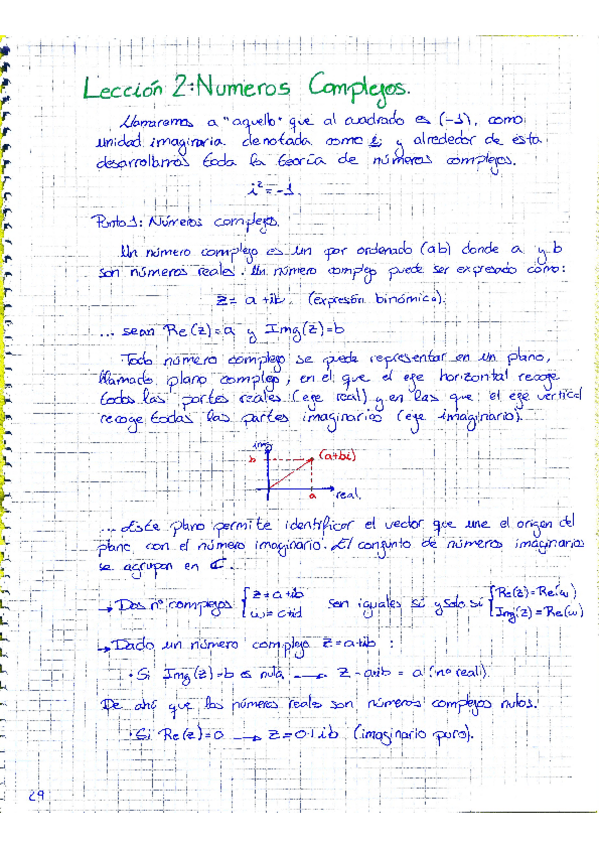 Lección 2: Numeros Complejos.
Llamaremos a "aquello" que al cuadrado es (-1), como
unidad imaginaria denotada como i, y alrededor de esta
desarrollamos toda la teoría de números complejos.
i² = -1.
Punto 1: Números complejos.
Un número complejo es un par ordenado (ab) donde a y b
son números reales. Un número complejo puede ser expresado como:
z = a + ib. (expresión binómica).
... sean Re(z)=a y Img(z)=b
Todo número complejo se puede representar en un plano,
llamado plano complejo, en el que el eje horizontal recoge
todas las partes reales (eje real) y en las que el eje vertical
recoge todas las partes imaginarias (eje imaginario).
img
b (a+bi)
a real.
... Este plano permite identificar el vector que une el origen del
plano con el número imaginario. El conjunto de números imaginarios
se agrupan en C.
→ Dos nº complejos { z = a+ib w = c+id son iguales si y solo si { Re(z) = Re(w) Img(z) = Re(w)
↳ Dado un número complejo z = a+ib :
· Si Img(z)=b es nula → z = a+ib = a (nº real).
De ahí que los números reales son números complejos nulos.
· Si Re(z)=0 → z = 0+ib (imaginario puro).
29